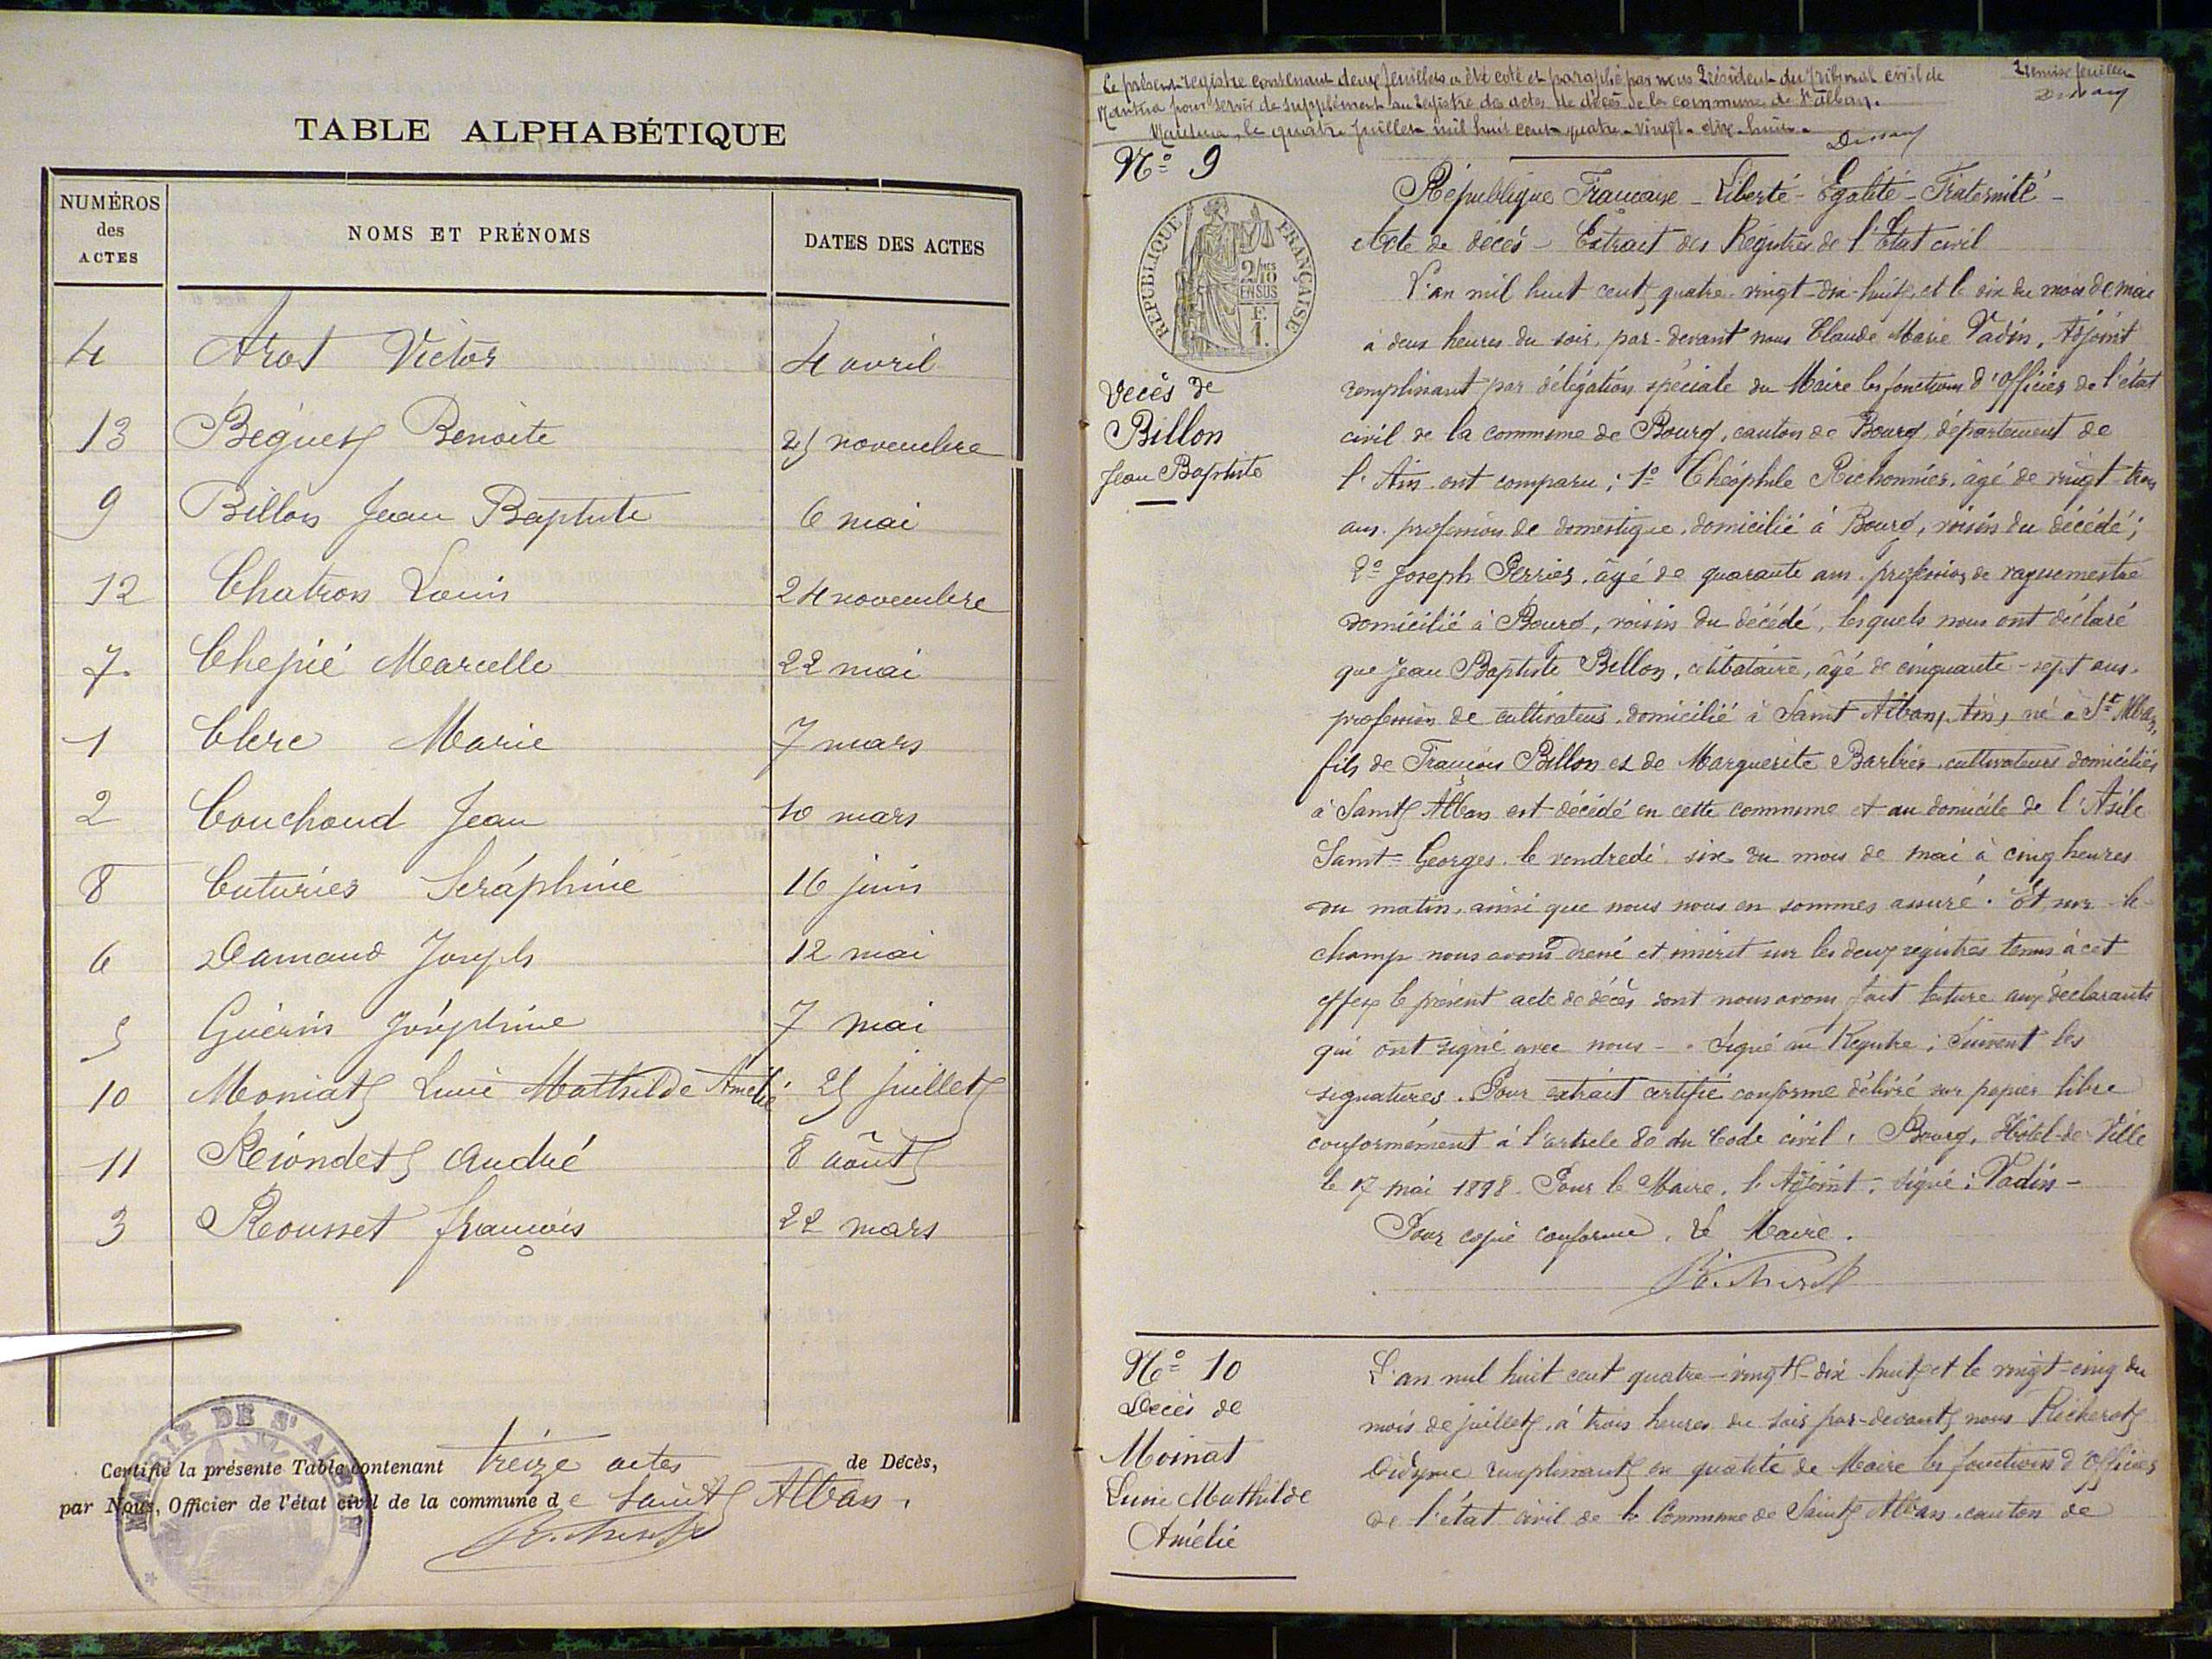 TABLE ALPHABÉTIQUE
NUMÉROS des ACTES
NOMS ET PRÉNOMS
DATES DES ACTES
4 Arod Victor 4 avril
13 Béguet Benoite 25 novembre
9 Billon Jean Baptiste 6 mai
12 Chatron Louis 24 novembre
7 Chepié Marcelle 22 mai
1 Clerc Marie 7 mars
2 Couchoud Jean 10 mars
8 Cuturier Séraphine 16 juin
6 Damand Joseph 12 mai
5 Guérin Joséphine 7 mai
10 Moniat Lucie Mathilde Amélie 25 juillet
11 Reiondet André 8 août
3 Rousset françois 22 mars
Certifié la présente Table contenant treize actes de Décès,
par Nous, Officier de l'état civil de la commune de Saint Alban.
MAIRIE DE St ALBAN
Le présent registre contenant deux feuillets a été coté et paraphé par nous Président du Tribunal civil de
Nantua pour servir de supplément au registre des actes de décès de la commune de St alban.
Nantua, le quatre juillet mil huit cent quatre-vingt-dix-huit.
feuillet
No 9
REPUBLIQUE FRANÇAISE
2/10mes EN SUS
F. 1.
Décès de
Billon
Jean Baptiste
République Française - Liberté - Égalité - Fraternité -
Acte de décès - Extrait des Registres de l'Etat civil
L'an mil huit cent quatre-vingt-dix-huit, et le six du mois de mai
à deux heures du soir, par-devant nous Claude Marie Vadin, Adjoint
remplissant par délégation spéciale du Maire les fonctions d'officier de l'état
civil de la commune de Bourg, canton de Bourg, département de
l'Ain ont comparu; 1o Théophile Richonnier, âgé de vingt-trois
ans, profession de domestique, domicilié à Bourg, voisin du décédé;
2o Joseph Perrier, âgé de quarante ans, profession de vaguemestre
domicilié à Bourg, voisin du décédé, lesquels nous ont déclaré
que Jean Baptiste Billon, célibataire, âgé de cinquante-sept ans,
profession de cultivateur, domicilié à Saint Alban, Ain, né à St Alban,
fils de François Billon et de Marguerite Barbier, cultivateurs domiciliés
à Saint Alban est décédé en cette commune et au domicile de l'Asile
Saint-Georges, le vendredi six du mois de mai à cinq heures
du matin, ainsi que nous nous en sommes assuré. Et sur-le-
champ nous avons dressé et inscrit sur les deux registres tenus à cet
effet le présent acte de décès dont nous avons fait lecture aux déclarants
qui ont signé avec nous - . Signé au Registre; Suivent les
signatures. Pour extrait certifié conforme délivré sur papier libre
conformément à l'article 80 du Code civil, Bourg, Hôtel-de-Ville
le 17 mai 1898. Pour le Maire, l'Adjoint, signé: Vadin -
Pour copie conforme, Le Maire.
No 10
Décès de
Moinat
Lucie Mathilde
Amélie
L'an mil huit cent quatre-vingt-dix-huit et le vingt-cinq du
mois de juillet, à trois heures du soir par-devant nous Richerot
Didyme remplissant en qualité de Maire les fonctions d'Officier
de l'état civil de la Commune de Saint Alban, canton de